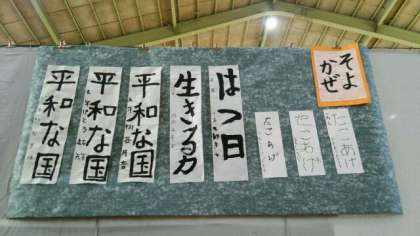 そよ
かぜ
たこあげ
たこあげ
たこあげ
はつ日
生きる力
平和な国
平和な国
平和な国